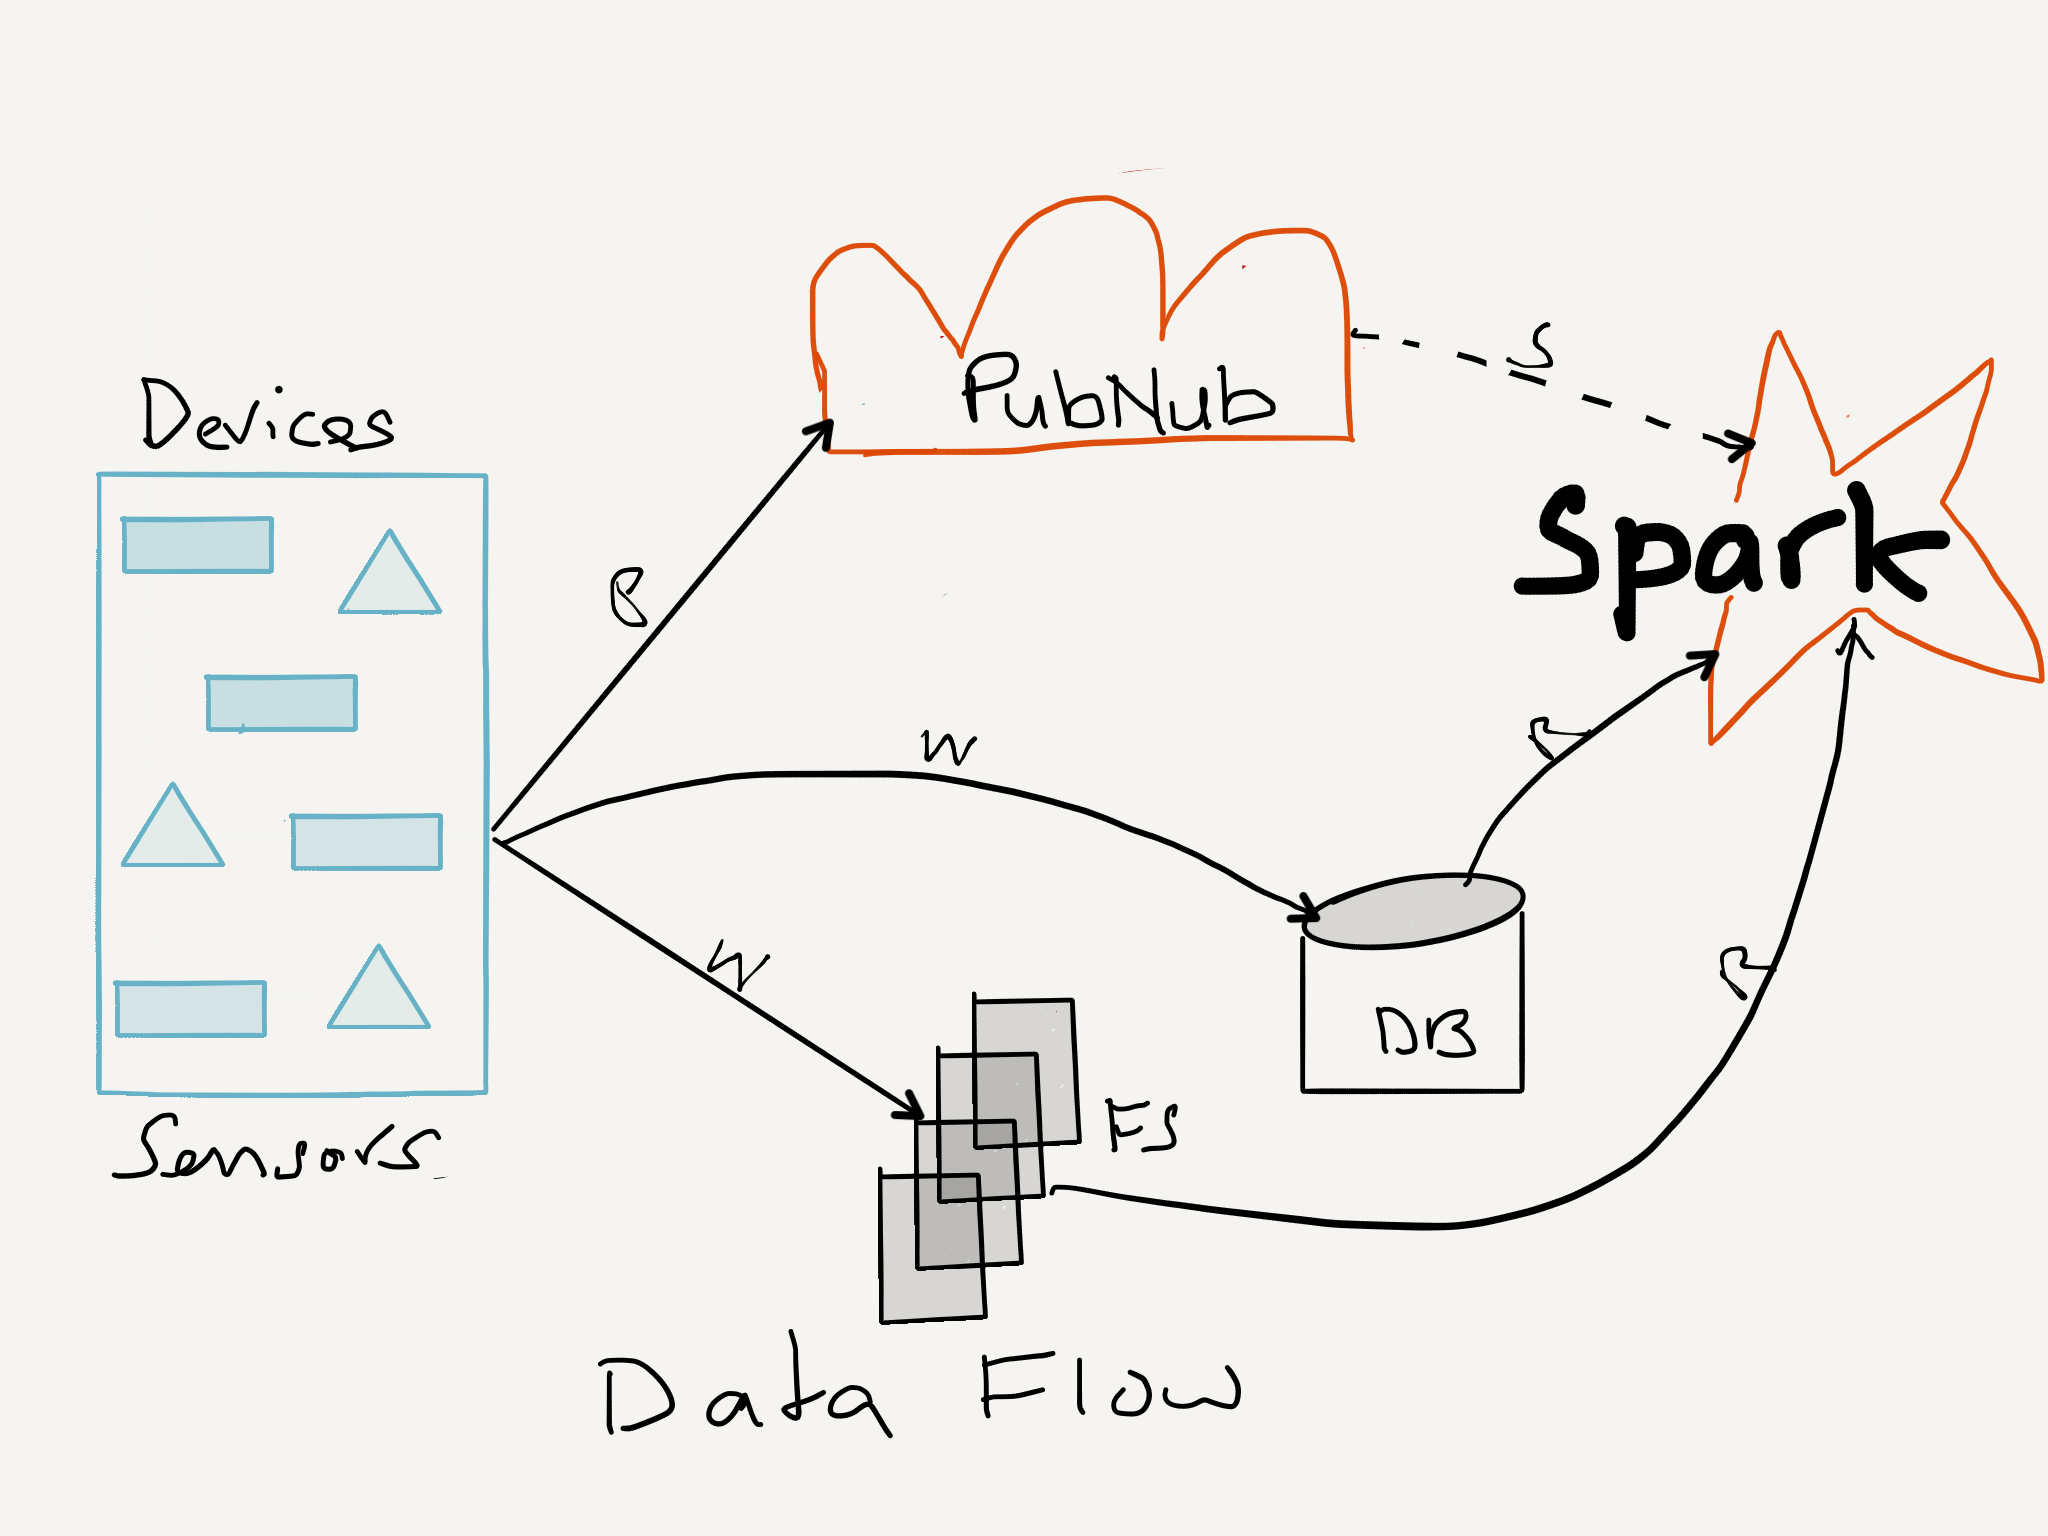 Devices
Sensors
PubNub
Spark
B
S
W
W
R
R
DB
FS
Data Flow